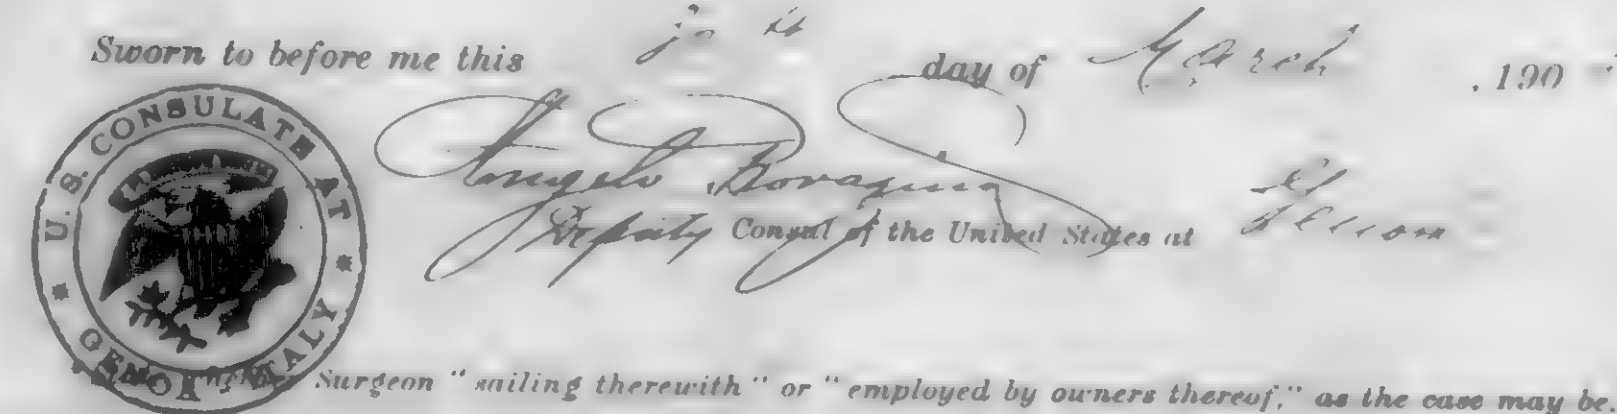 Sworn to before me this day of March , 190
U. S. CONSULATE AT
GENOA ITALY
Angelo Boragino
Deputy Consul of the United States at Genoa
Surgeon "sailing therewith" or "employed by owners thereof," as the case may be.